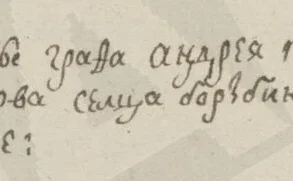 бе графа андрея
ова селца барыбин
е: